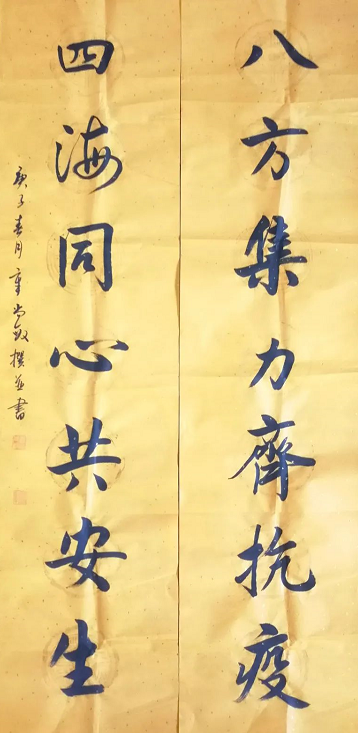 八方集力齊抗疫
四海同心共安生
庚子春月章尚敏撰並書